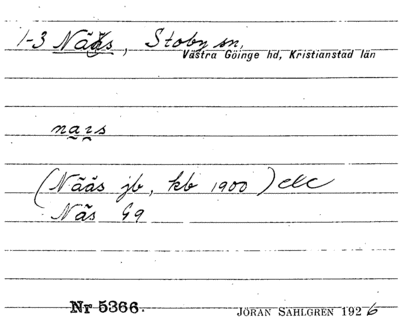 1-3 Nääs, Stoby sn,
Västra Göinge hd, Kristianstad län
(Nääs jb, kb 1900)
Näs G9
Nr 5366.
JÖRAN SAHLGREN 1926